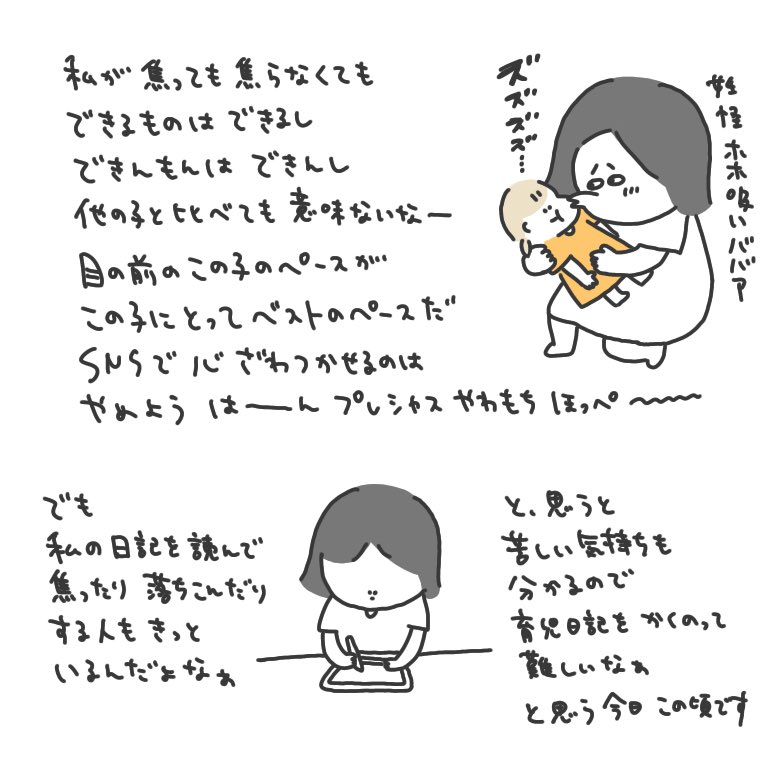 私が 焦っても 焦らなくても
できるものは できるし
できんもんは できんし
他の子と比べても 意味ないなー
目の前の この子のペースが
この子にとって ベストのペースだ
SNSで 心 ざわつかせるのは
やめよう はーーん プレシャス やわもち ほっぺ〜〜〜
ズズズズズ…
妖怪 ホホ吸いババア
でも
私の日記を 読んで
焦ったり 落ちこんだり
する人も きっと
いるんだよなぁ
と、思うと
苦しい気持ちも
分かるので
育児日記を かくのって
難しいなぁ
と思う今日この頃です